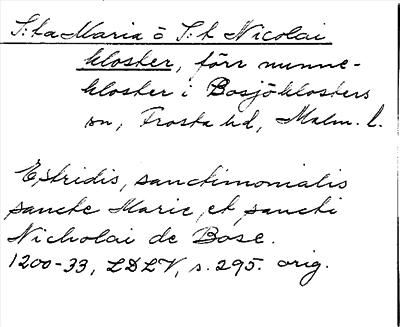 S:ta Maria o S:t Nicolai
kloster, förr nunne-
kloster i Bosjöklosters
sn, Frosta hd, Malm. l.
Estridis, sanctimonialis
sancte Marie et sancti
Nicholai de Bose.
1200-33, LDLV, s. 295. orig.